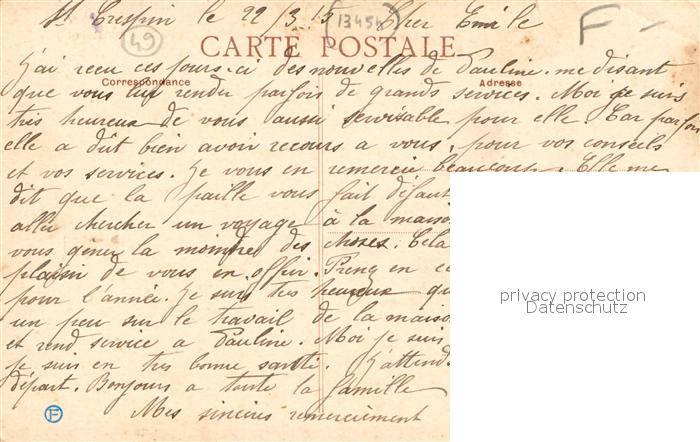 St Crespin le 22/3/15 Cher Emile
49
13454
F-
CARTE POSTALE
Correspondance
Adresse
J'ai recu ces jours-ci des nouvelles de Pauline. me disant
que vous lui render parfois de grands services. Moi je suis
très heureux de vous aussi servisable pour elle. Car parfois
elle a dût bien avoir recours a vous, pour vos conseils
et vos services. Je vous en remercie beaucoup. Elle me
dit que la paille vous fait défaut
aller chercher un voyage à la maiso
vous gêner la moindre des choses. Cela
plaisir de vous en offrir. Prenez en ce
pour l'année. Je suis très heureux qu
un peu sur le travail de la maiso
et rend service a Pauline. Moi je suis
je suis en très bonne santé. J'attend
départ. Bonjours a toute la famille
Mes sincères remerciement
F
privacy protection
Datenschutz